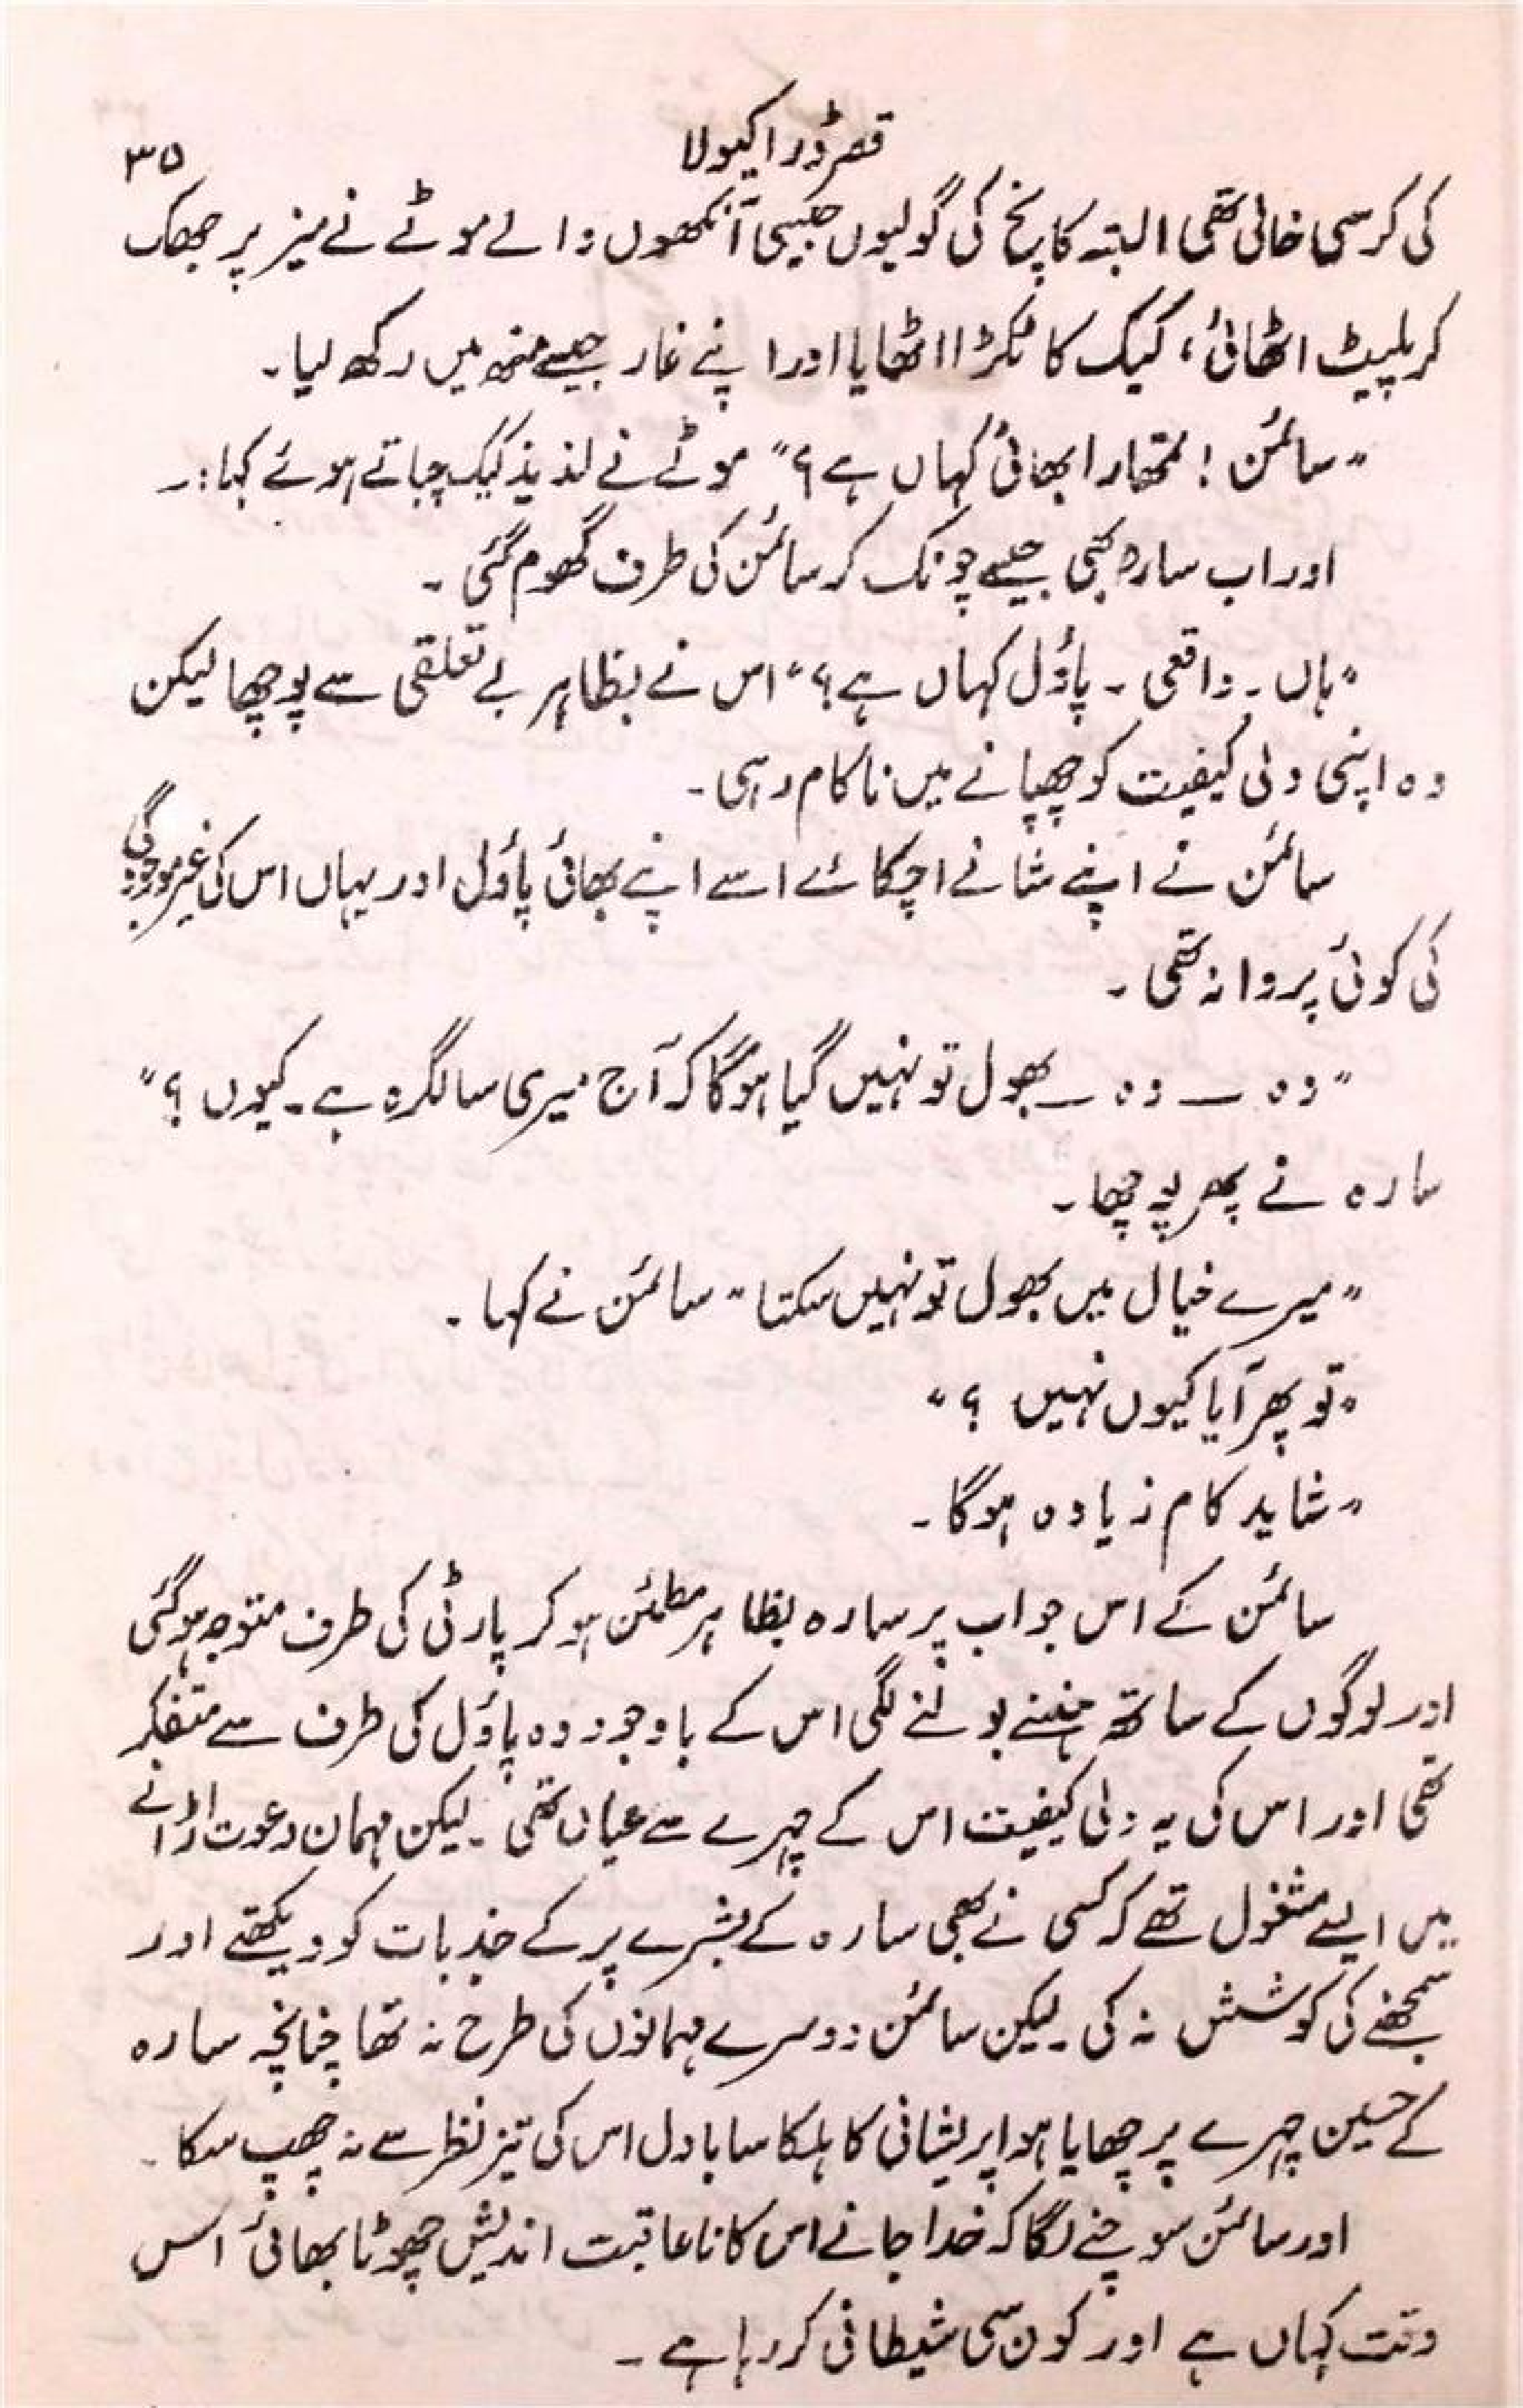 قصر ڈراکیولا
۳۵
کی کرسی خالی تھی البتہ کانچ کی گولیوں جیسی آنکھوں والے موٹے نے میز پر جھک
کر پلیٹ اٹھائی، کیک کا ٹکڑا اٹھایا اور اپنے غار جیسے منھ میں رکھ لیا۔
"سائمن! تمھارا بھائی کہاں ہے؟" موٹے نے لذیذ کیک چباتے ہوئے کہا:۔
اور اب سارہ بھی جیسے چونک کر سائمن کی طرف گھوم گئی۔
"ہاں۔ واقعی۔ پاؤل کہاں ہے؟" اس نے بظاہر بے تعلقی سے پوچھا لیکن
وہ اپنی دلی کیفیت کو چھپانے میں ناکام رہی۔
سائمن نے اپنے شانے اچکائے اسے اپنے بھائی پاؤل اور یہاں اس کی غیر موجودگی
کی کوئی پروا نہ تھی۔
"وہ — وہ — بھول تو نہیں گیا ہوگا کہ آج میری سالگرہ ہے۔ کیوں؟"
سارہ نے پھر پوچھا۔
"میرے خیال میں بھول تو نہیں سکتا" سائمن نے کہا۔
"تو پھر آیا کیوں نہیں؟"
"شاید کام زیادہ ہوگا۔
سائمن کے اس جواب پر سارہ بظاہر مطمئن ہو کر پارٹی کی طرف متوجہ ہوگئی
اور لوگوں کے ساتھ ہنسنے بولنے لگی اس کے باوجود وہ پاؤل کی طرف سے متفکر
تھی اور اس کی یہ دلی کیفیت اس کے چہرے سے عیاں تھی۔ لیکن مہمان دعوت اڑانے
میں ایسے مشغول تھے کہ کسی نے بھی سارہ کے بشرے پر کے جذبات کو دیکھتے اور
سمجھنے کی کوشش نہ کی۔ لیکن سائمن دوسرے مہمانوں کی طرح نہ تھا چنانچہ سارہ
کے حسین چہرے پر چھایا ہوا پریشانی کا ہلکا سا بادل اس کی تیز نظر سے نہ چھپ سکا۔
اور سائمن سوچنے لگا کہ خدا جانے اس کا ناعاقبت اندیش چھوٹا بھائی اس
وقت کہاں ہے اور کون سی شیطانی کر رہا ہے۔